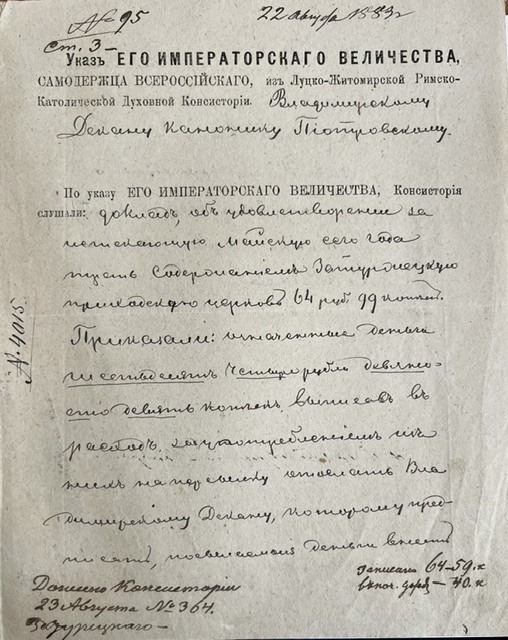 № 95
22 Августа 1883 г
Ст. 3 —
Указъ ЕГО ИМПЕРАТОРСКАГО ВЕЛИЧЕСТВА,
САМОДЕРЖЦА ВСЕРОССІЙСКАГО, изъ Луцко-Житомирской Римско-
Католической Духовной Консисторіи. Владимирскому
Декану Канонику Піотровскому.
По указу ЕГО ИМПЕРАТОРСКАГО ВЕЛИЧЕСТВА, Консисторія
слушали: докладъ, объ удовлетвореніи за
истекающую Майскую сего года
треть содержаніемъ Затурецкую
приходскую церковь 64 руб. 99 копѣек.
Приказали: означенные деньги
шестьдесятъ четыре рубля девяно-
сто девять копѣекъ, выписавъ въ
расходъ, за употребленіемъ изъ
нихъ на пересылку отослать Вла-
димирскому Декану, которому пред-
писать, посылаемыя деньги внесть
№ 4015
Донесено Консисторіи
23 Августа № 364.
записано 64-59. к
— 40. к